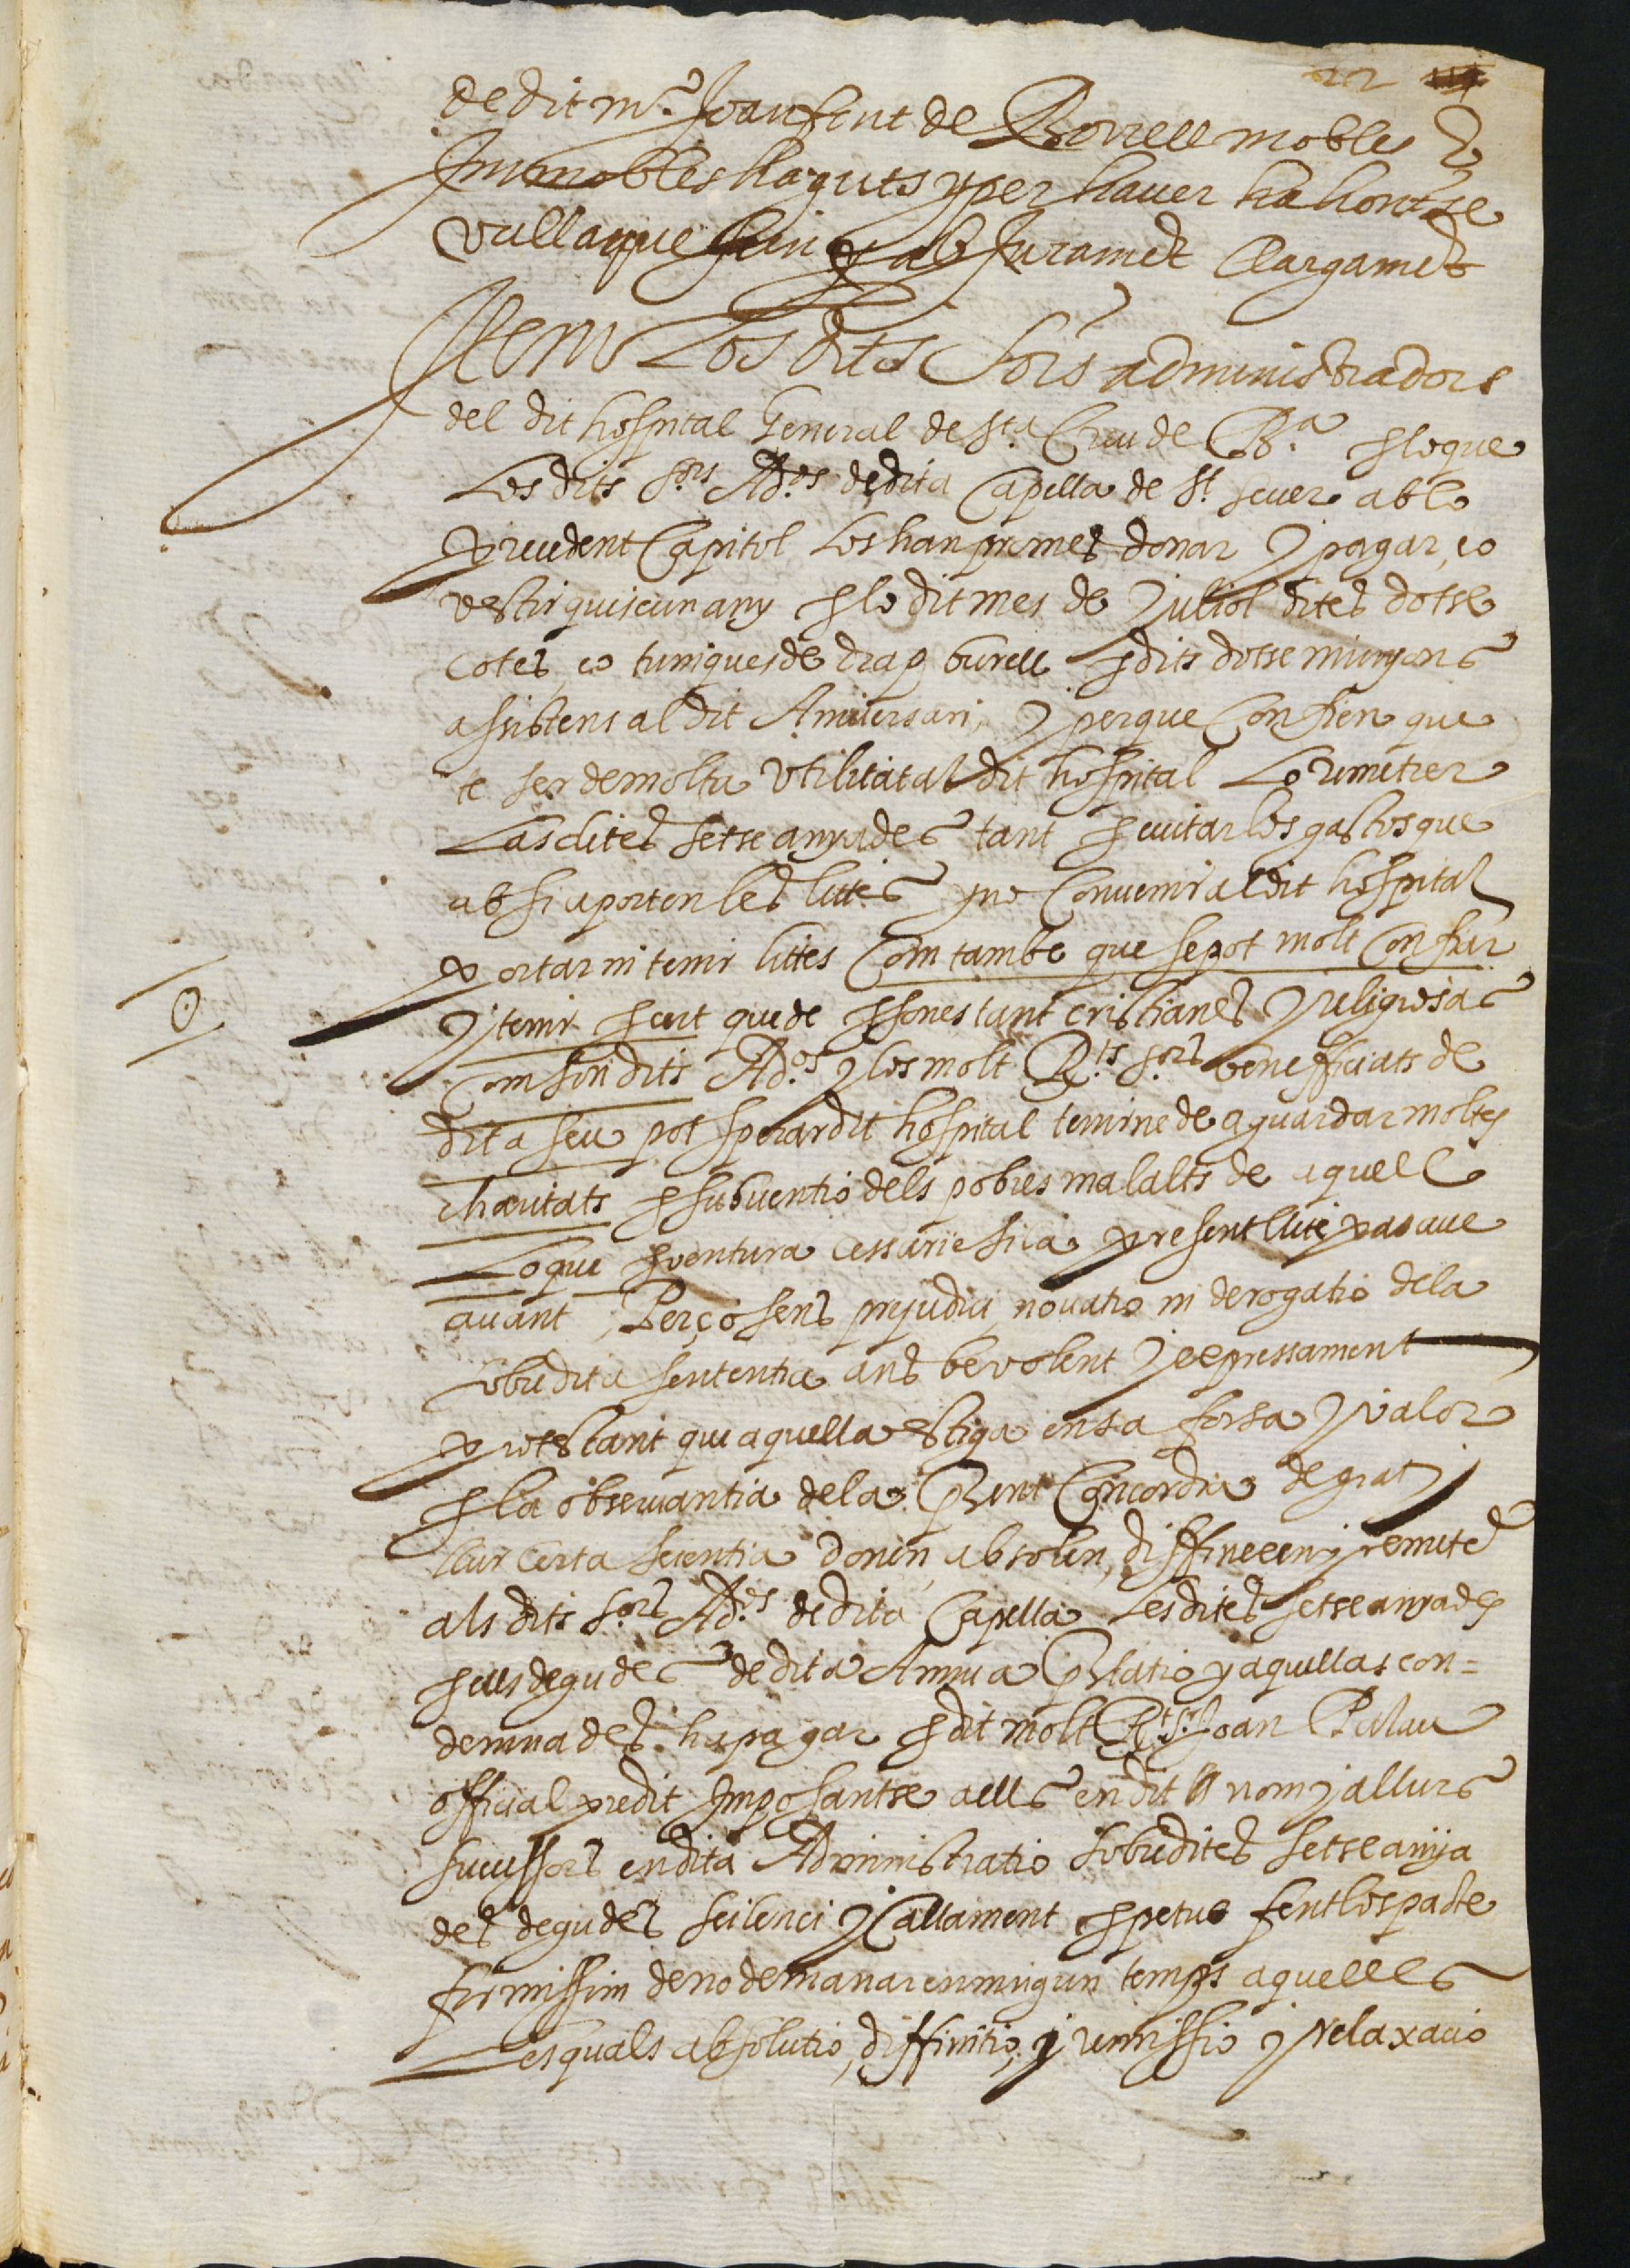 22
de dit mr. Joan Font de Borrell mobles &
Immobles haguts y per haver ha hont se
vulla que sien y ab Jurament Llargament
Item Los dits Sors administradors
del dit hospital General de Sta Creu de Ba. per lo que
Los dits Sors Ados de dita Capella de St. sever ab lo
prudent Capitol los han promes donar y pagar, eo
vestir quiscun any per lo dit mes de Juliol dites dotse
cotes, eo tuniques de drap burell per dits dotse minyons
assistens al dit Aniversari, y perque Confien que
te ser de molta Utilitat al dit hospital Lo remetrer
Las dites setse anyades tant per evitar los gastos que
ab si aporten les lites y no Convenir al dit hospital
portar ni tenir lites Com tambe que se pot molt Confiar
y tenir per cert que de persones tant cristianes y religiosas
Com son dits Ados y los molt Rts Sors beneficiats de
dita seu pot sperar dit hospital tenirne de aguardar moltes
charitats per subventio dels pobres malalts de aquell
Lo que per ventura cessarie si la present lite pasave
avant, Perço sens prejudici novatio ni derogatio dela
sobredita sententia ans be volent y expressament
protestant que aquella estiga en sa forsa y valor
per la observantia dela pnt Concordia de grat y
llur certa scientia donen, absolen, diffineexen y remete
als dits Sors Ados de dita Capella Les dites setse anyades
per ells degudes de dita Annua pstatio y aquellas con=
demnades ha pagar per dit molt Rt Sr Joan Palau
official predit Imposantse a ells en dit nom y a llurs
successors en dita Administratio sobredites setse anya
des degudes scilenci y Callament perpetuo fent los pacte
firmissim de no demanar en ningun temps aquelles
Les quals absolutio, diffinitio, y remissio y relaxacio